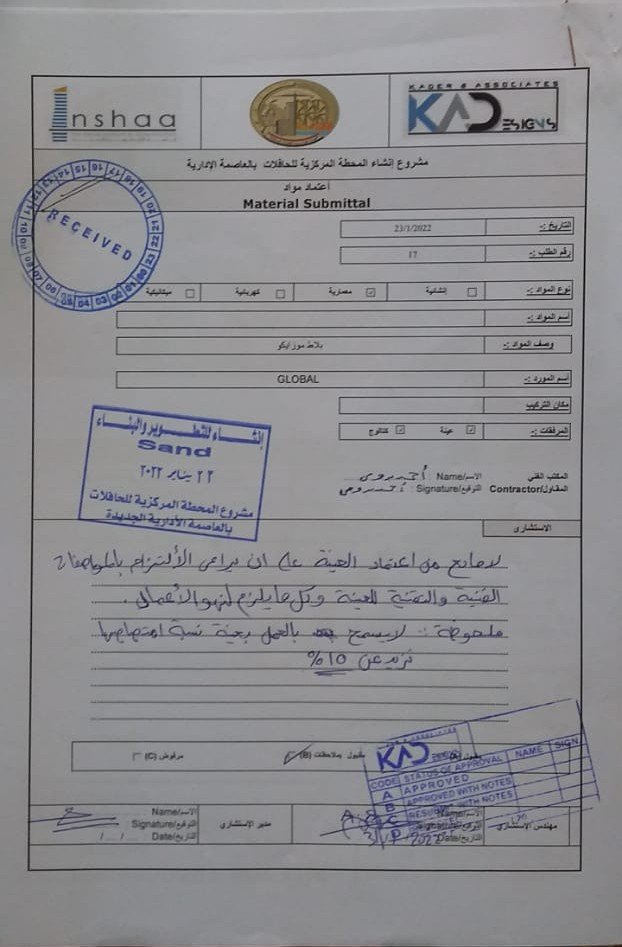 Inshaa
KADER & ASSOCIATES
KAD ESIGNS
مشروع إنشاء المحطة المركزية للحافلات بالعاصمة الإدارية
أعتماد مواد
Material Submittal
التاريخ :-
23/1/2022
رقم الطلب :-
17
RECEIVED
نوع المواد :-
إنشائية
معمارية
كهربائية
ميكانيكية
أسم المواد :-
وصف المواد :-
بلاط موزايكو
أسم المورد :-
GLOBAL
مكان التركيب
المرفقات :-
عينة
كتالوج
إنشاء للتطوير والبناء
Sand
٢٢ يناير ٢٠٢٢
مشروع المحطة المركزية للحافلات
بالعاصمة الأدارية الجديدة
المكتب الفني
الاسم/Name :
المقاول/Contractor
التوقيع/Signature :
الاستشارى
لا مانع من اعتماد العينة على ان يراعى الألتزام بالمواصفات
الفنية والتقنية للعينة وكل ما يلزم لنهو الأعمال .
ملحوظة :. لا يسمح بالعمل بعينة نسبة امتصاصها
تزيد عن 10%
مقبول بملاحظات (B)
مرفوض (C)
KAD
CODE STATUS OF APPROVAL NAME SIGN
A APPROVED
B APPROVED WITH NOTES
C WITH NOTES
D
مهندس الإستشارى
Date/التاريخ
مدير الإستشارى
الاسم/Name :
التوقيع/Signature :
التاريخ/Date : / /